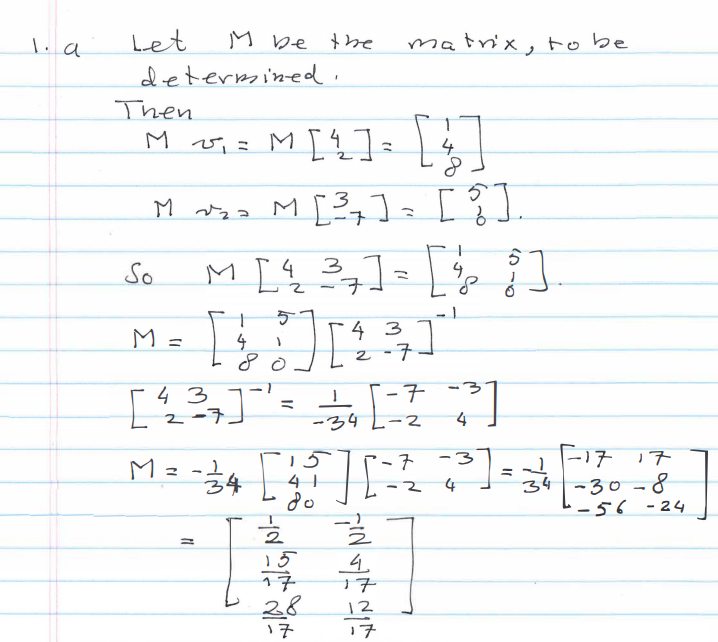 1. a Let M be the matrix, to be
determined.
Then
M v₁ = M [4; 2] = [1; 4; 8]
M v₂ = M [3; -7] = [5; 1; 0].
So M [4 3; 2 -7] = [1 5; 4 1; 8 0].
M = [1 5; 4 1; 8 0] [4 3; 2 -7]⁻¹
[4 3; 2 -7]⁻¹ = 1/-34 [-7 -3; -2 4]
M = -1/34 [1 5; 4 1; 8 0] [-7 -3; -2 4] = -1/34 [-17 17; -30 -8; -56 -24]
= [1/2 -1/2; 15/17 4/17; 28/17 12/17]